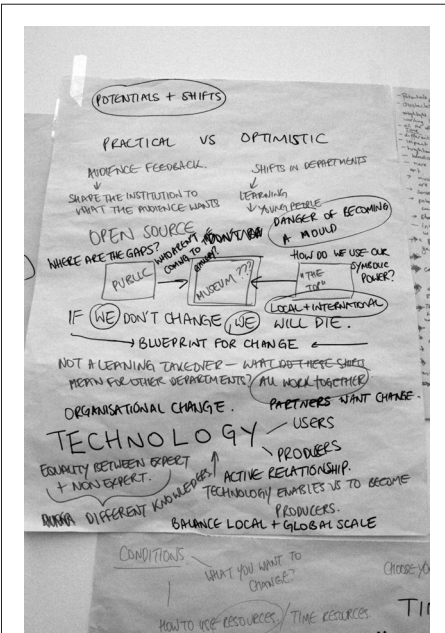 POTENTIALS + SHIFTS
PRACTICAL VS OPTIMISTIC
AUDIENCE FEEDBACK.
SHAPE THE INSTITUTION TO
WHAT THE AUDIENCE WANTS
SHIFTS IN DEPARTMENTS
LEARNING
YOUNG PEOPLE
DANGER OF BECOMING
A MOULD
OPEN SOURCE
WHERE ARE THE GAPS?
WHO AREN'T
COMING TO
PUBLIC
MUSEUM ???
"THE
TOP"
HOW DO WE USE OUR
SYMBOLIC
POWER?
LOCAL + INTERNATIONAL
IF WE DON'T CHANGE, WE WILL DIE.
BLUEPRINT FOR CHANGE
NOT A LEARNING TAKEOVER — WHAT DO THESE SHIFTS
MEAN FOR OTHER DEPARTMENTS? ALL WORK TOGETHER
ORGANISATIONAL CHANGE.
PARTNERS WANT CHANGE.
TECHNOLOGY
USERS
PRODUCERS
EQUALITY BETWEEN EXPERT
+ NON EXPERT.
DIFFERENT KNOWLEDGES
ACTIVE RELATIONSHIP.
TECHNOLOGY ENABLES US TO BECOME
PRODUCERS.
BALANCE LOCAL + GLOBAL SCALE
CONDITIONS
WHAT YOU WANT TO
CHANGE?
HOW TO USE RESOURCES / TIME RESOURCES
CHOOSE